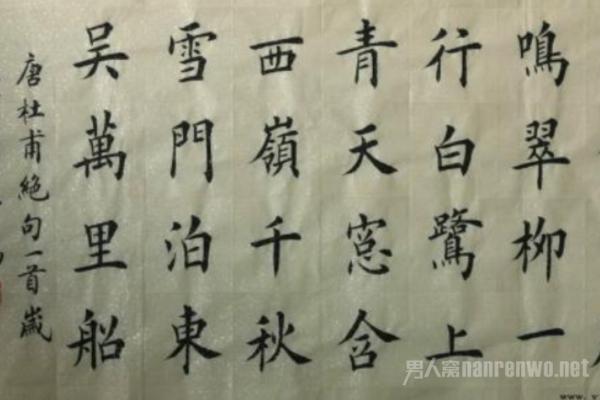 鳴翠柳一
行白鷺上
青天窓含
西嶺千秋
雪門泊東
吴萬里船
唐杜甫絕句一首歲
男人窝nanrenwo.net